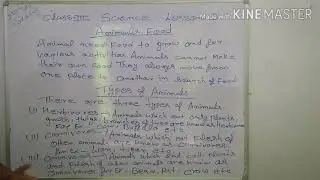 Classtic Science Lesson
Made with KINEMASTER
Animals Food
Animal need Food to grow and for
various activities Animals cannot Make
their own food They always move from
one place to another in Search of Food
Types of Animals
There are three types of Animals
(I) Herbivores - Animals which eat only plants,
are Herbivores
For Ex. Cow, Buffalo etc
(II) Carnivores - Animals which eat Flesh of
other animals are known as Carnivores
for Ex. Lion, Tiger etc
(III) Animals which eat both plants
and Flesh of other animals are known as
for Ex. Bear, Rat, Crow etc